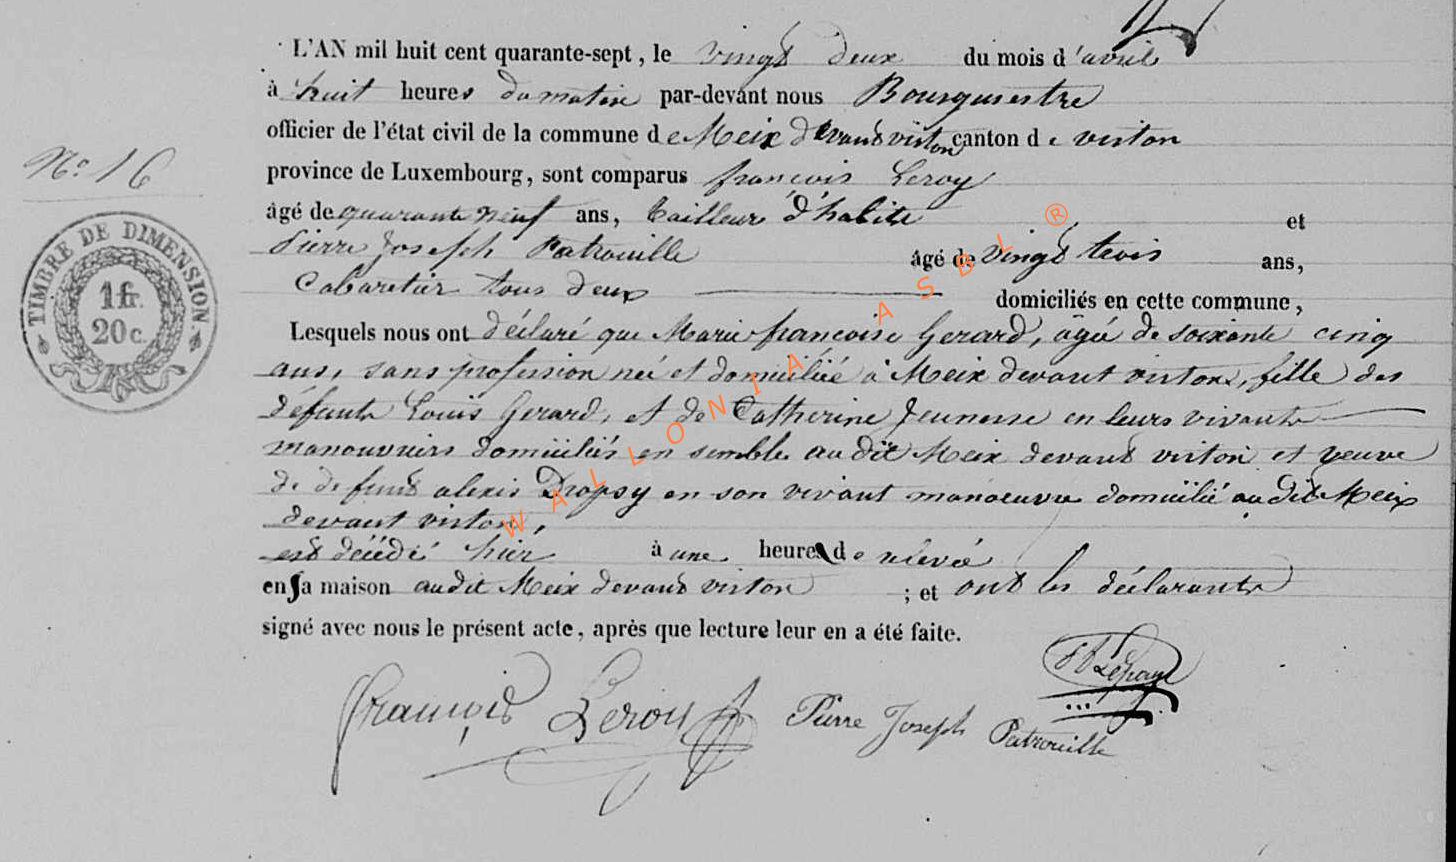 L'AN mil huit cent quarante-sept, le vingt deux du mois d'avril
à huit heures du matin par-devant nous Bourguestre
officier de l'état civil de la commune de Meix devant virton canton de virton
N° 16
province de Luxembourg, sont comparus françois Leroy
âgé de quarante neuf ans, tailleur d'habits et
Pierre Joseph Patrouille âgé de vingt trois ans,
Cabaretier tous deux domiciliés en cette commune,
TIMBRE DE DIMENSION.
1 fr.
20 c.
Lesquels nous ont déclaré que Marie françoise Gerard, agée de soixante cinq
ans, sans profession née et domiciliée à Meix devant virton, fille des
défunts Louis Gerard, et de Catherine Jeunesse en leurs vivants
manouvriers domiciliés en semble au dit Meix devant virton et veuve
de defunt alexis Dropsy en son vivant manoeuvre domicilié au dit Meix
devant virton,
est décédé hier à une heure de relevée
en sa maison audit Meix devant virton ; et ont les déclarants
signé avec nous le présent acte, après que lecture leur en a été faite.
Lepage
François Leroy Pierre Joseph Patrouille
WALLONIA ASBL ®